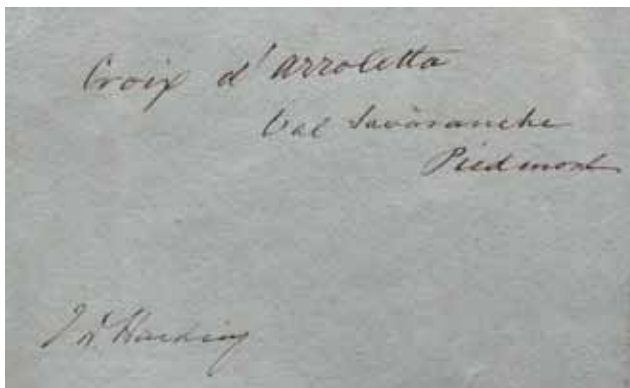 Croix d'Arroletta
Val Savaranche
Piedmont
J D Harding